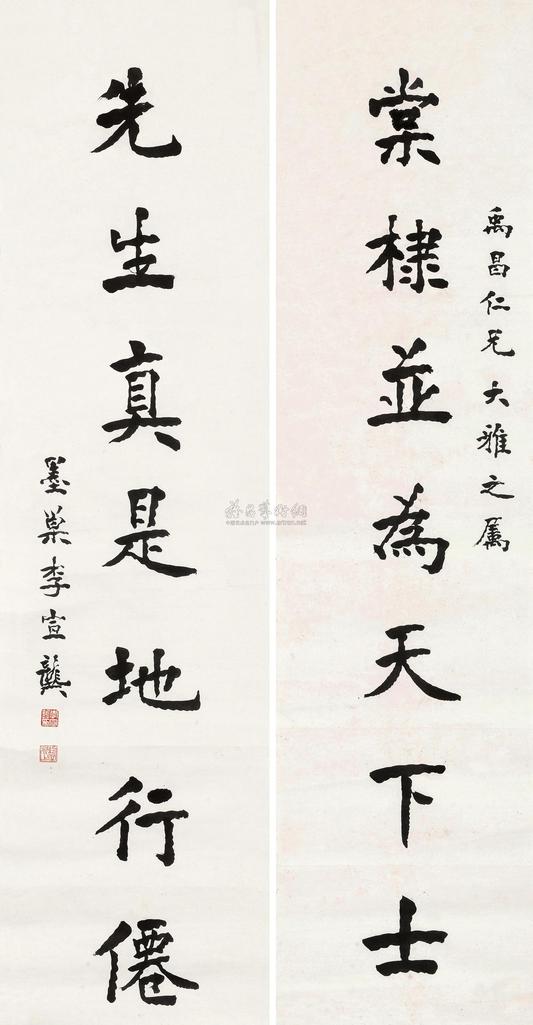 禹昌仁兄大雅之属
棠棣並為天下士
先生真是地行僊
墨巢李宣龔